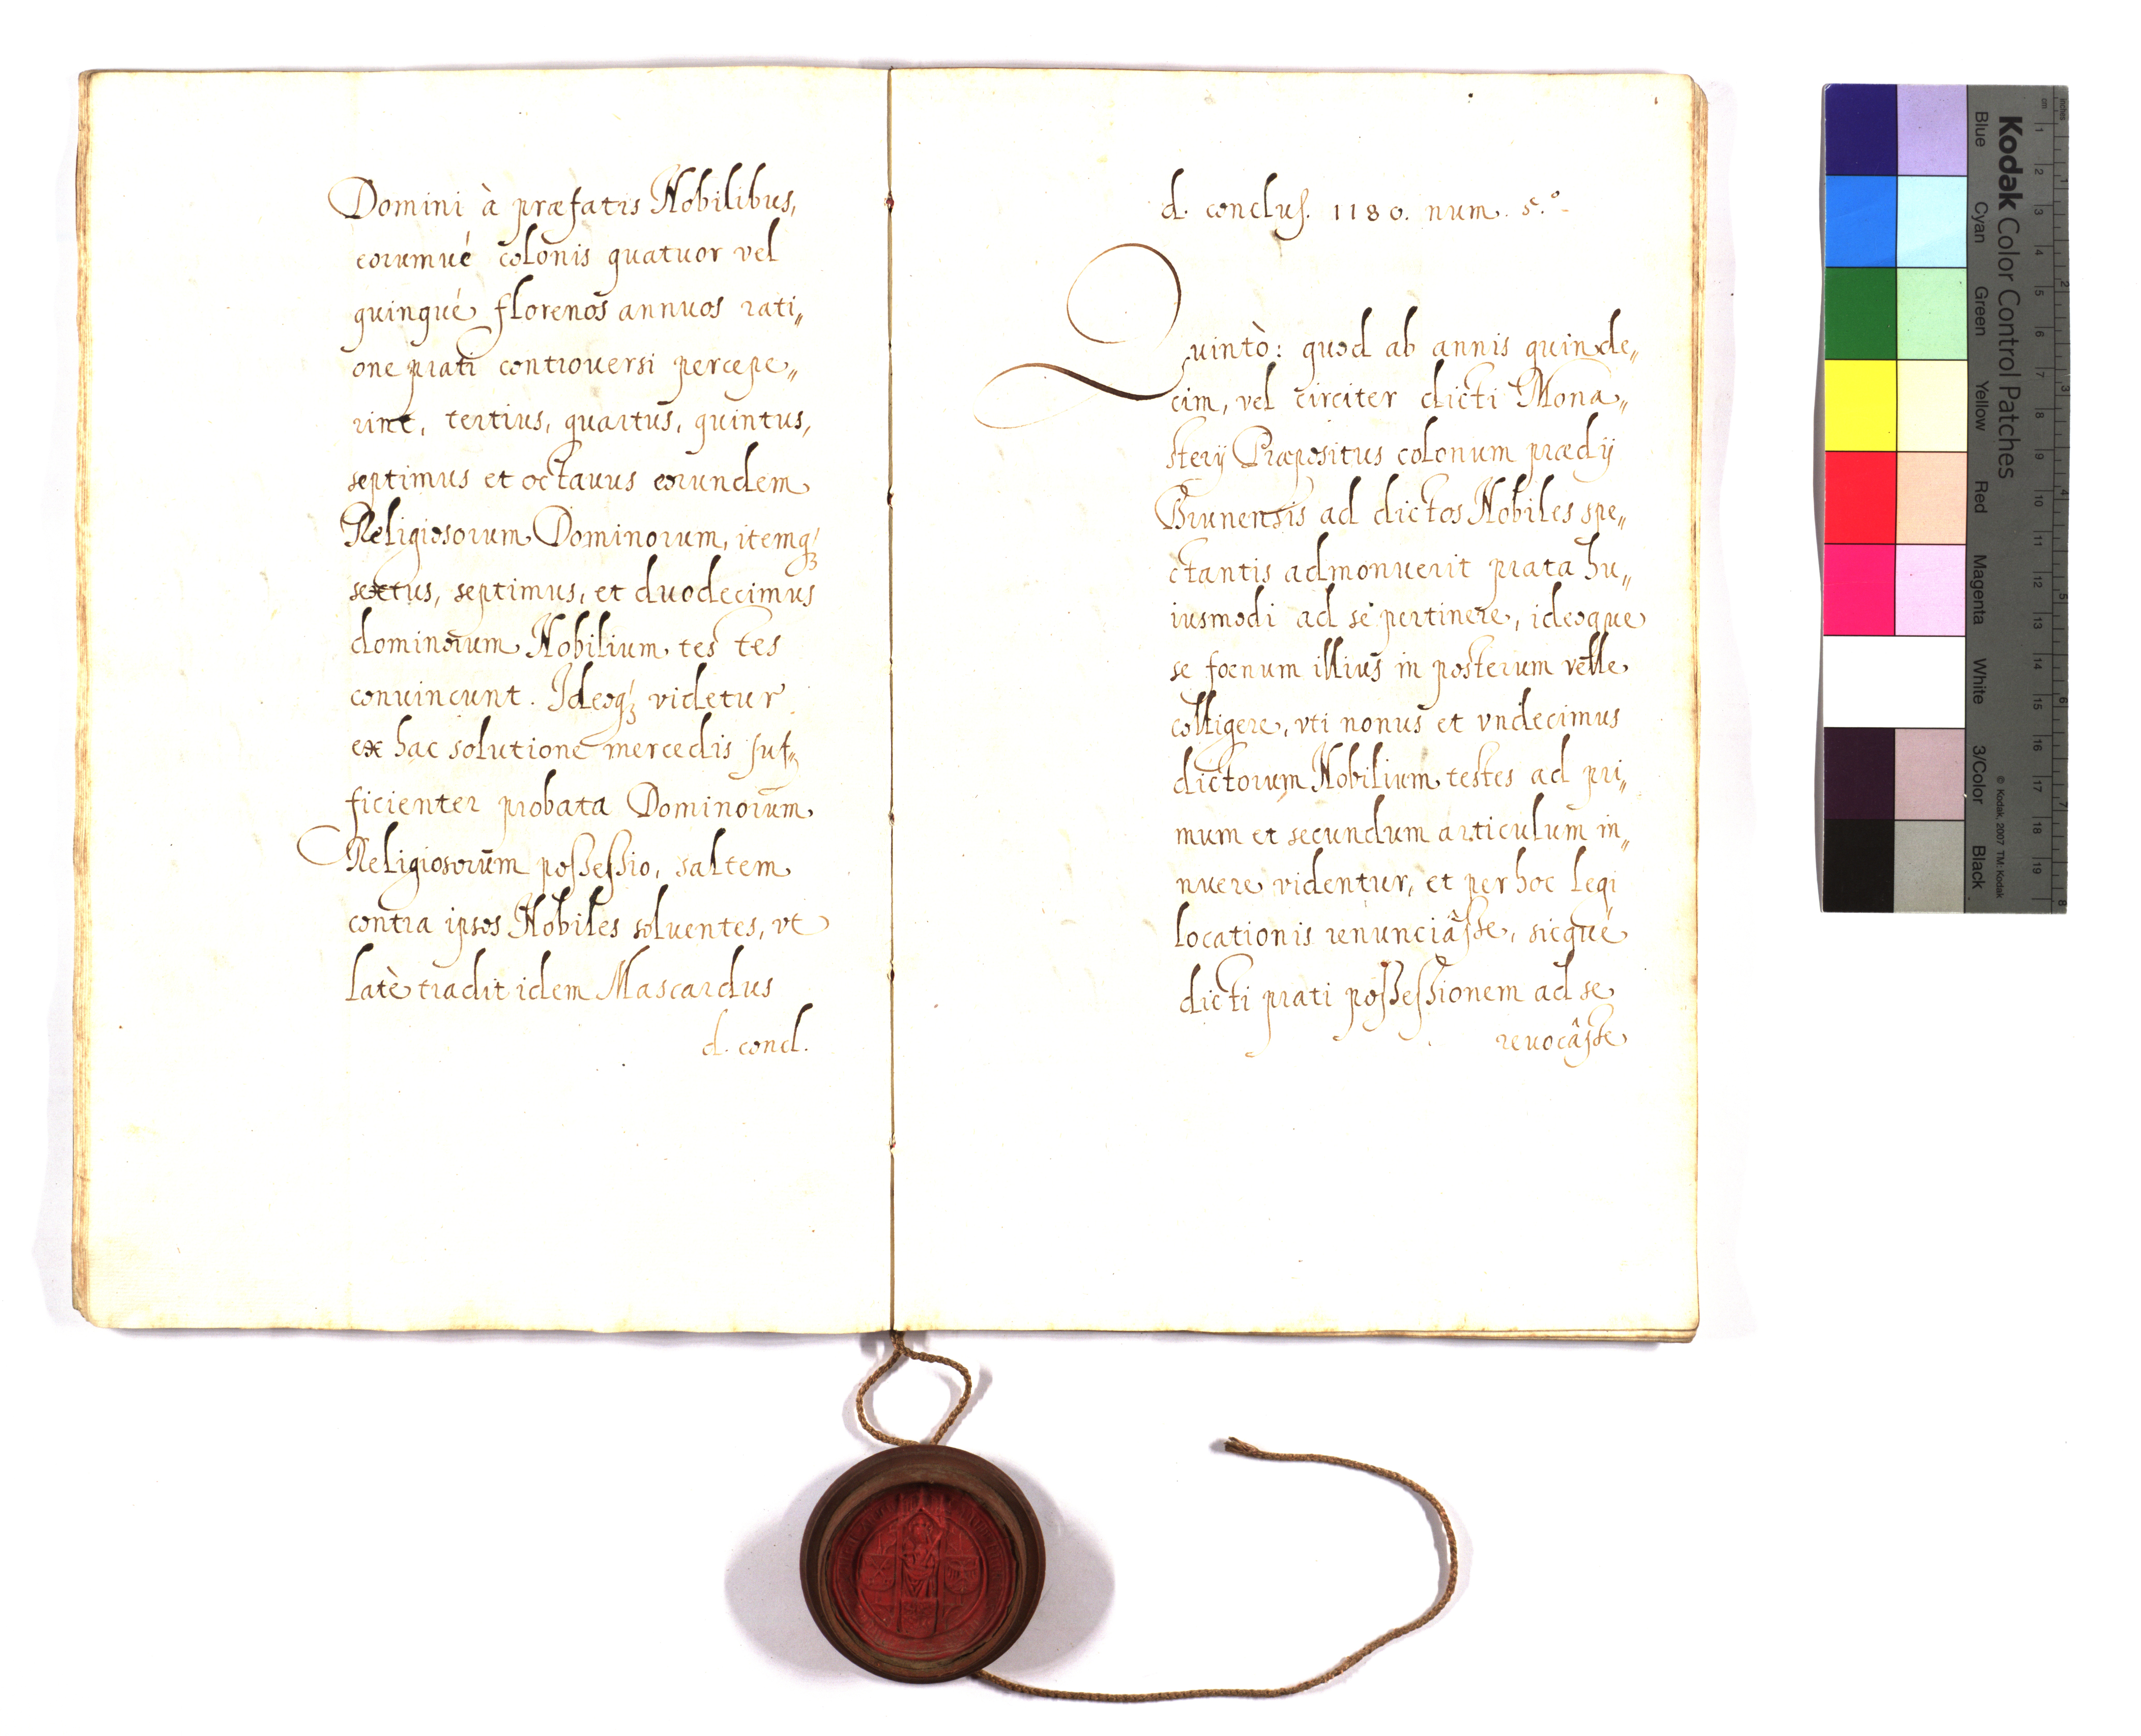 Domini à præfatis Nobilibus,
eorumué colonis quatuor vel
quinqué florenos annuos rati„
one prati controuersi percepe„
rint, tertius, quartus, quintus,
septimus et octauus eorundem
Religiosorum Dominorum, itemq́ꝫ
sextus, septimus, et duodecimus
dominorum Nobilium tes tes
conuincunt. Ideoq́ꝫ videtur
ex hac solutione mercedis suf„
ficienter probata Dominorum
Religiosorum poſseſsio, saltem
contra ipsos Nobiles soluentes, vt
latè tradit idem Mascardus
d. concl.
d. concluſ. 1180. num. 5.º
Quintò: quod ab annis quinde„
cim, vel circiter dicti Mona„
sterÿ Præpositus colonum prædÿ
Brunensis ad dictos Nobiles spe„
ctantis admonuerit prata hu„
iusmodi ad se pertinere, ideoque
se fœnum illius in posterum velle
colligere, vti nonus et vndecimus
dictorum Nobilium testes ad pri„
mum et secundum articulum in„
nuere videntur, et per hoc legi
locationis renunciâſse, sicqué
dicti prati poſseſsionem ad se
reuocâſse
Kodak Color Control Patches
Blue
Cyan
Green
Yellow
Red
Magenta
White
3/Color
Black
© Kodak, 2007 TM: Kodak
cm 1 2 3 4 5 6 7 8 9 10 11 12 13 14 15 16 17 18 19
inches 1 2 3 4 5 6 7 8